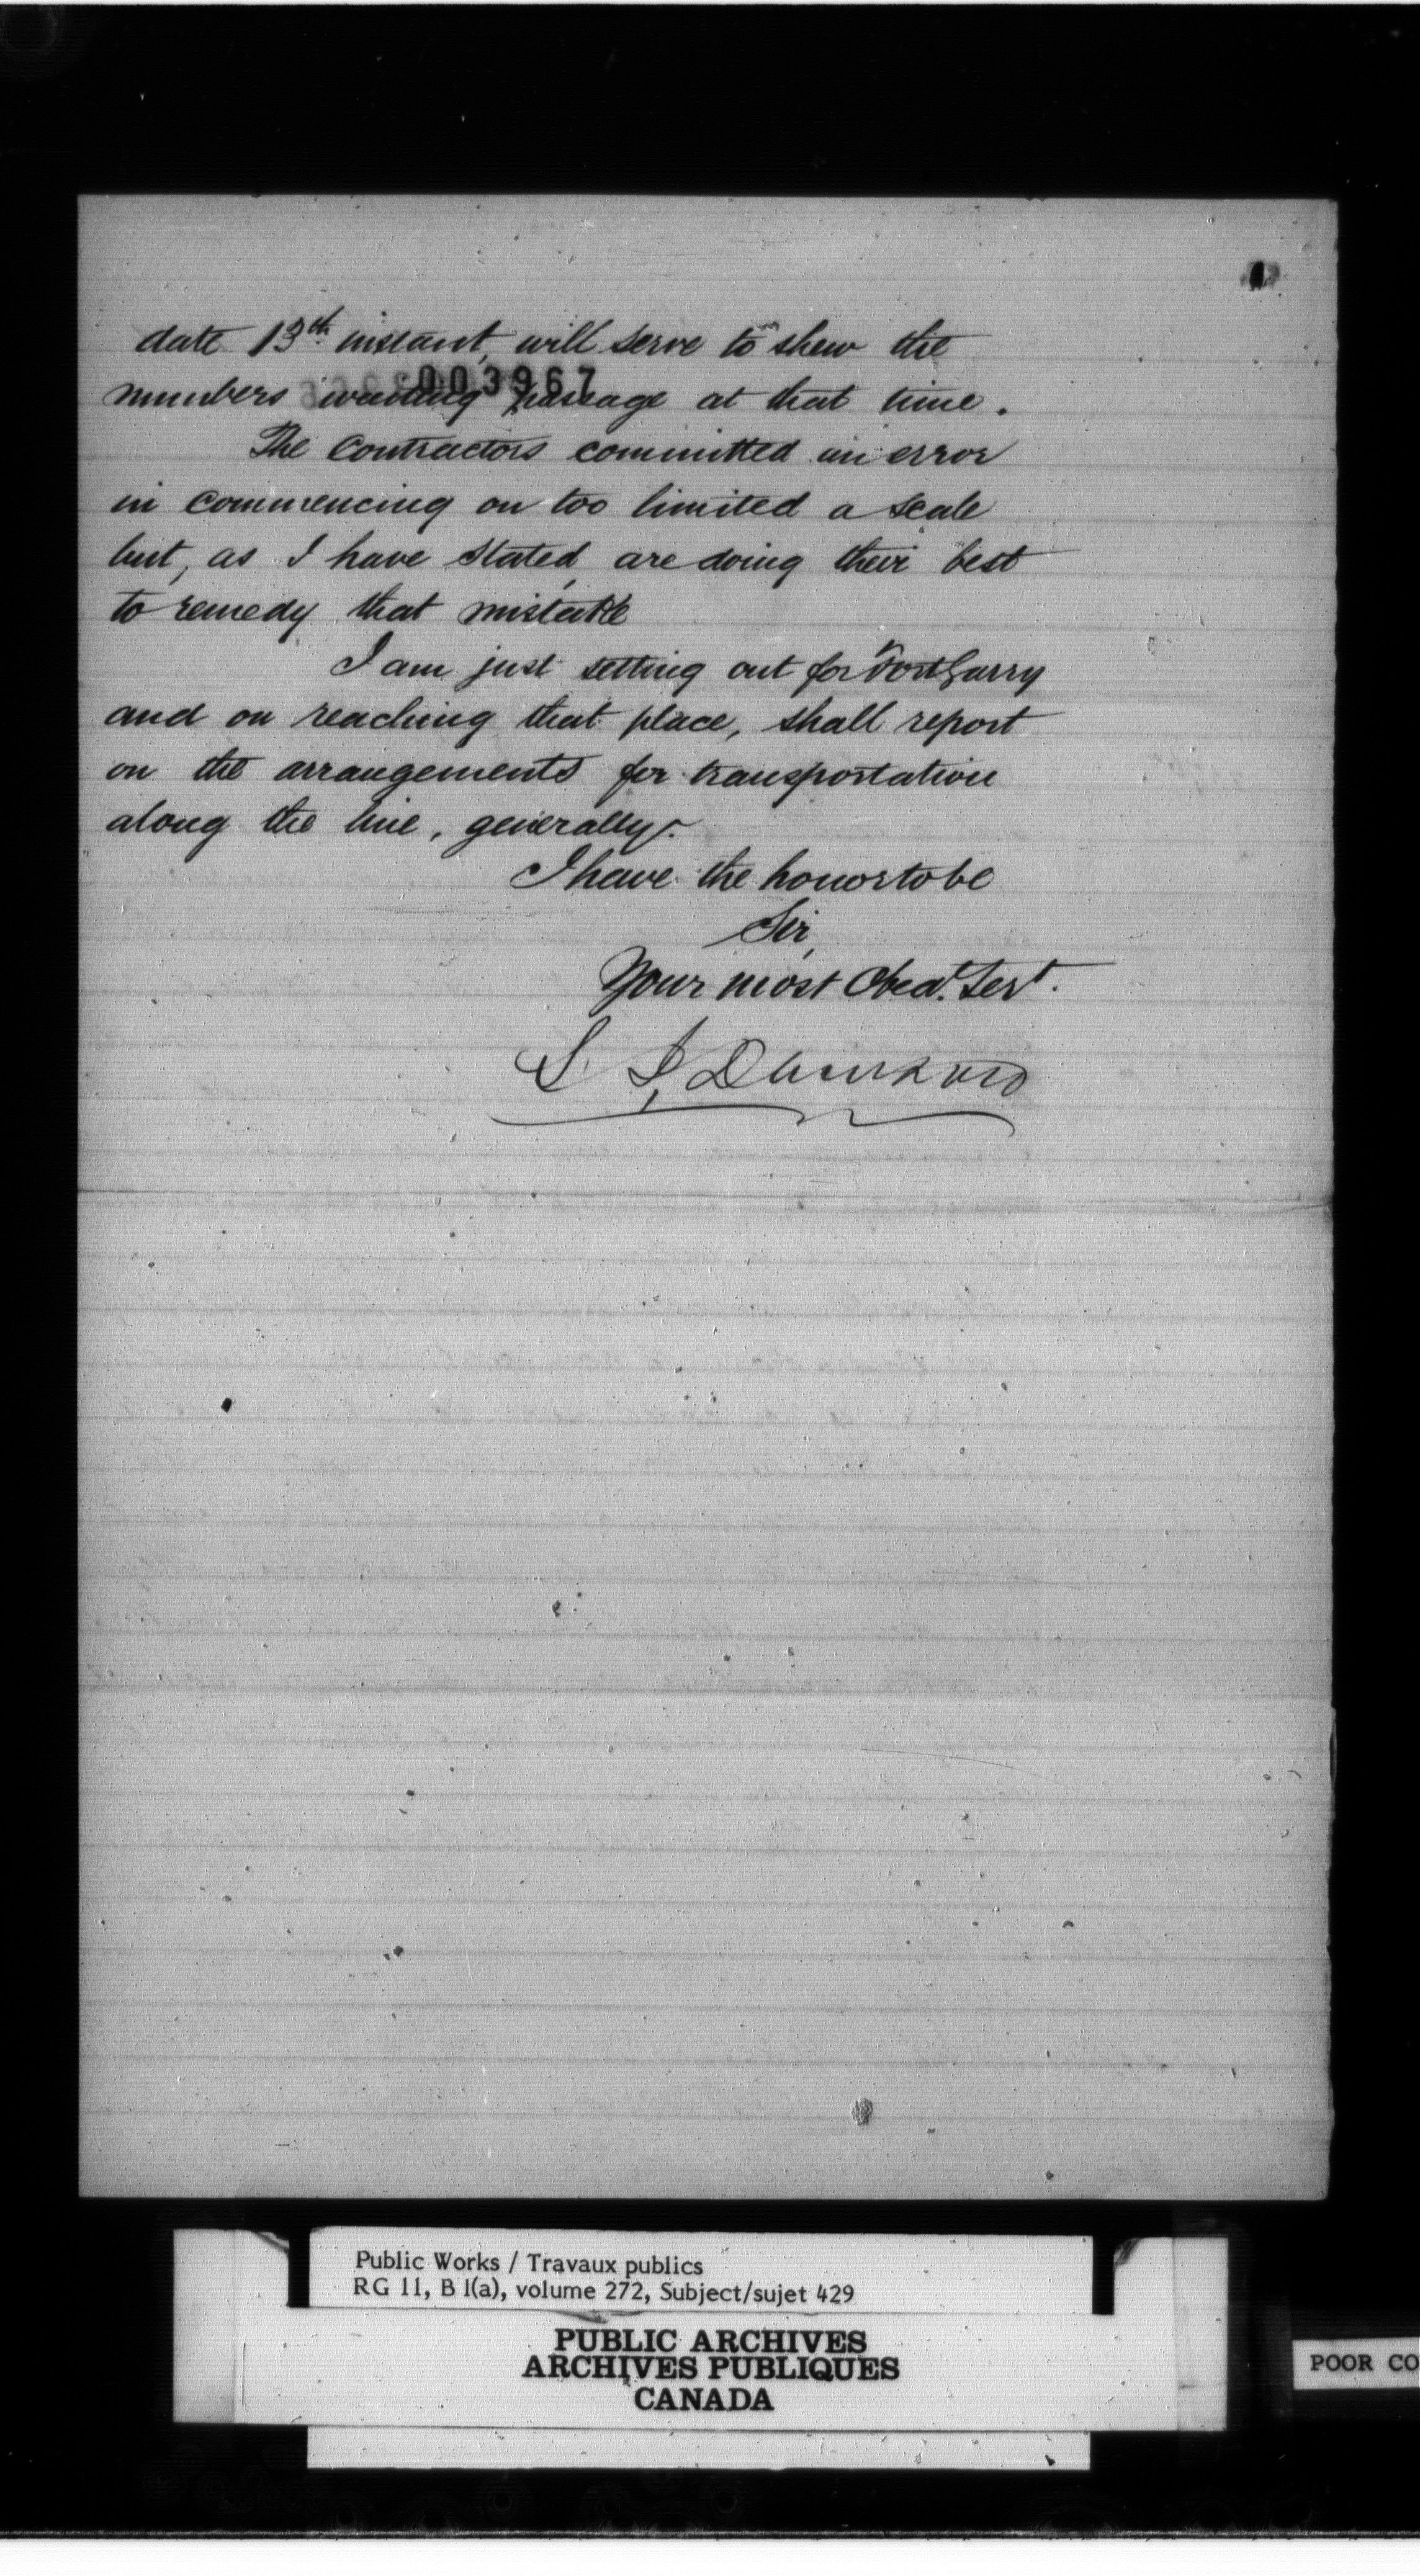 date 13th instant, will serve to shew the
003967
numbers waiting passage at that time.
The Contractors committed an error
in commencing on too limited a scale
but, as I have stated, are doing their best
to remedy that mistake
I am just setting out for Fort Garry
and on reaching that place, shall report
on the arrangements for transportation
along the line, generally.
I have the honor to be
Sir,
Your most Obedt. Servt.
S. J. Dawson
Public Works / Travaux publics
RG 11, B 1(a), volume 272, Subject/sujet 429
PUBLIC ARCHIVES
ARCHIVES PUBLIQUES
CANADA
POOR CO